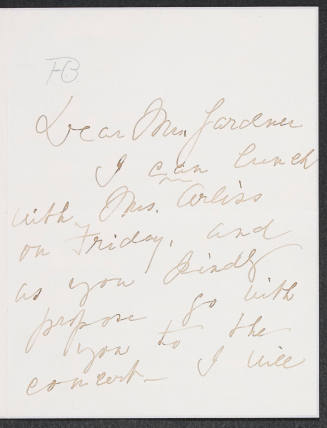 FB
Dear Mrs. Gardner
I can lunch
with Mrs. Arliss
on Friday, and
as you kindly
propose go with
you to the
concert - I will